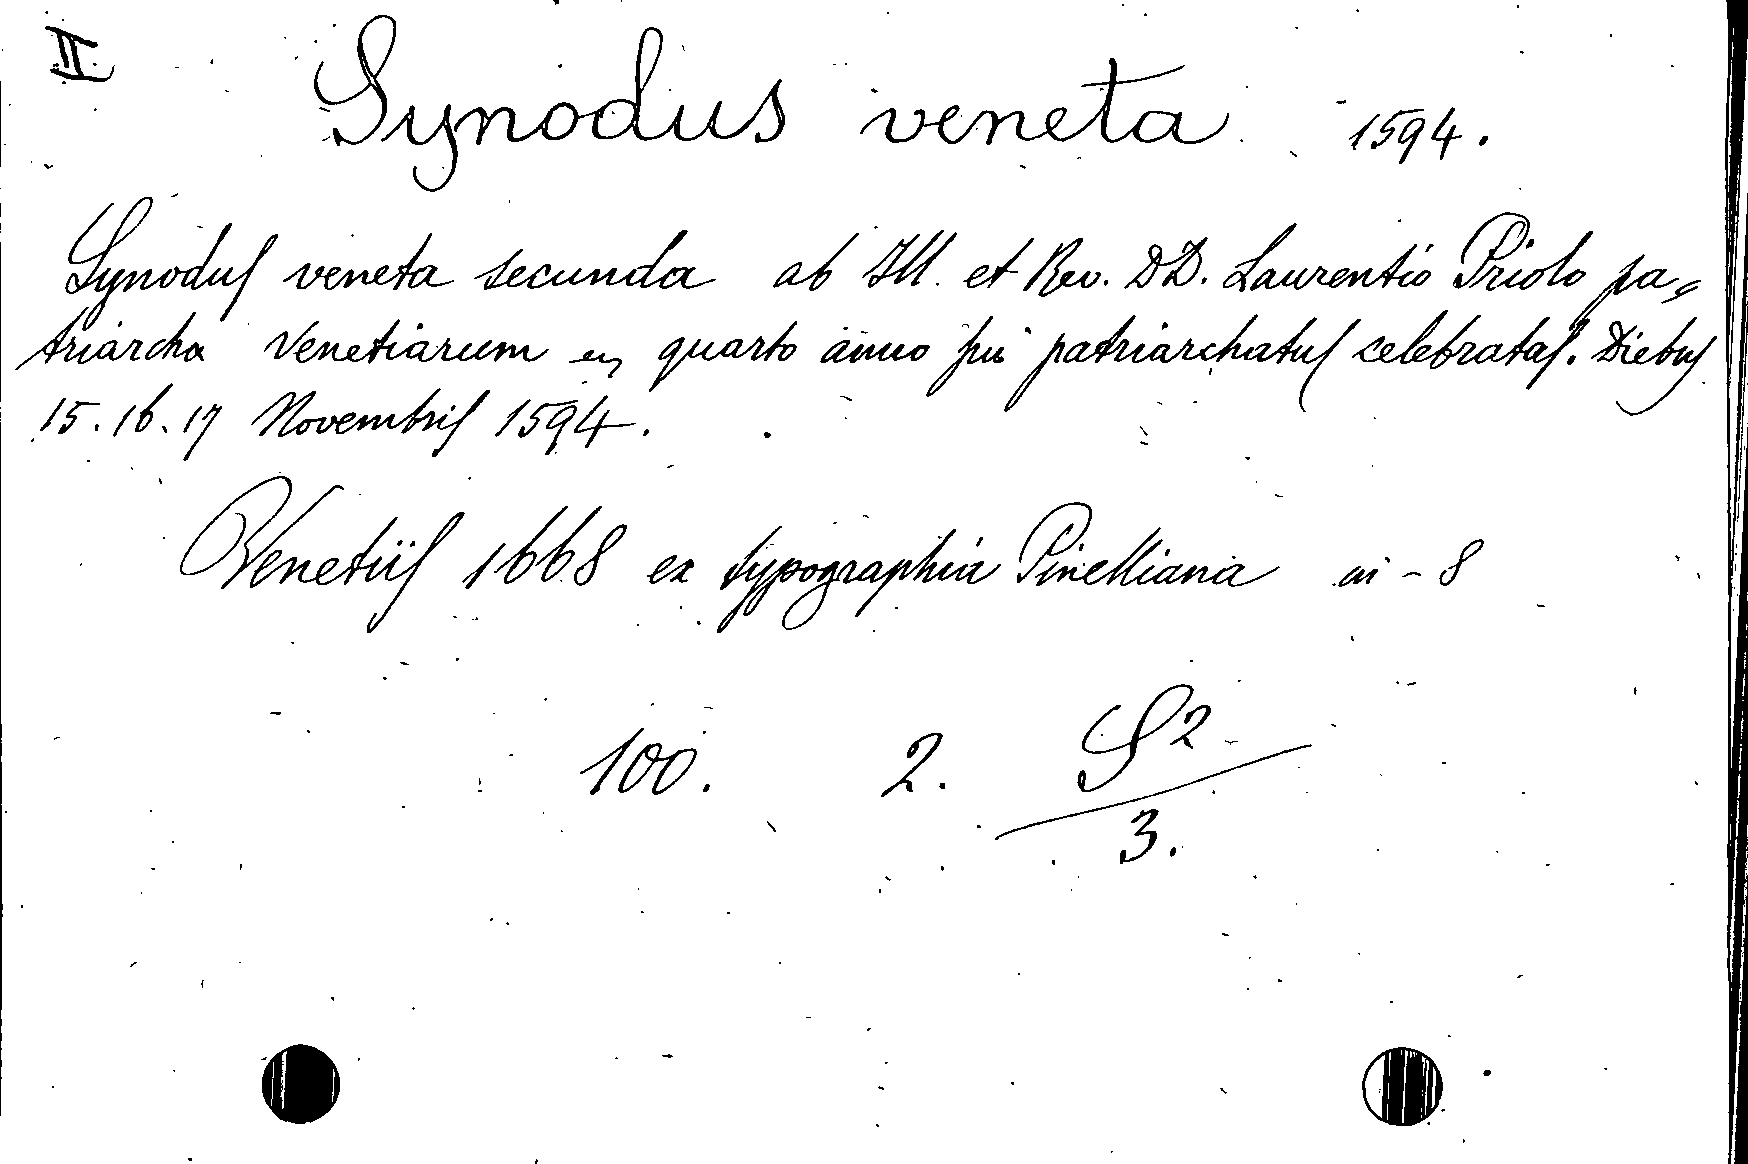 II
Synodus veneta 1594.
Synodus veneta secunda ab Ill. et Rev. DD. Laurentio Priolo pa=
triarcha Venetiarum quarto anno sui patriarchatus celebratas. Diebus
15. 16. 17 Novembris 1594.
Venetiis 1668 ex typographia Pinelliana in - 8
100. 2. S2
3.